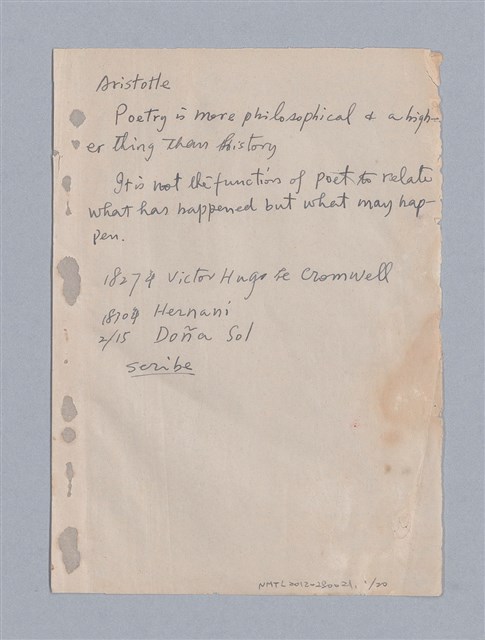 Aristotle
Poetry is more philosophical & a high-
er thing than history
It is not the function of poet to relate
what has happened but what may hap-
pen.
1827年 Victor Hugo Le Cromwell
年 Hernani
2/15 Doña Sol
scribe
NMTL2012-2800 1/20